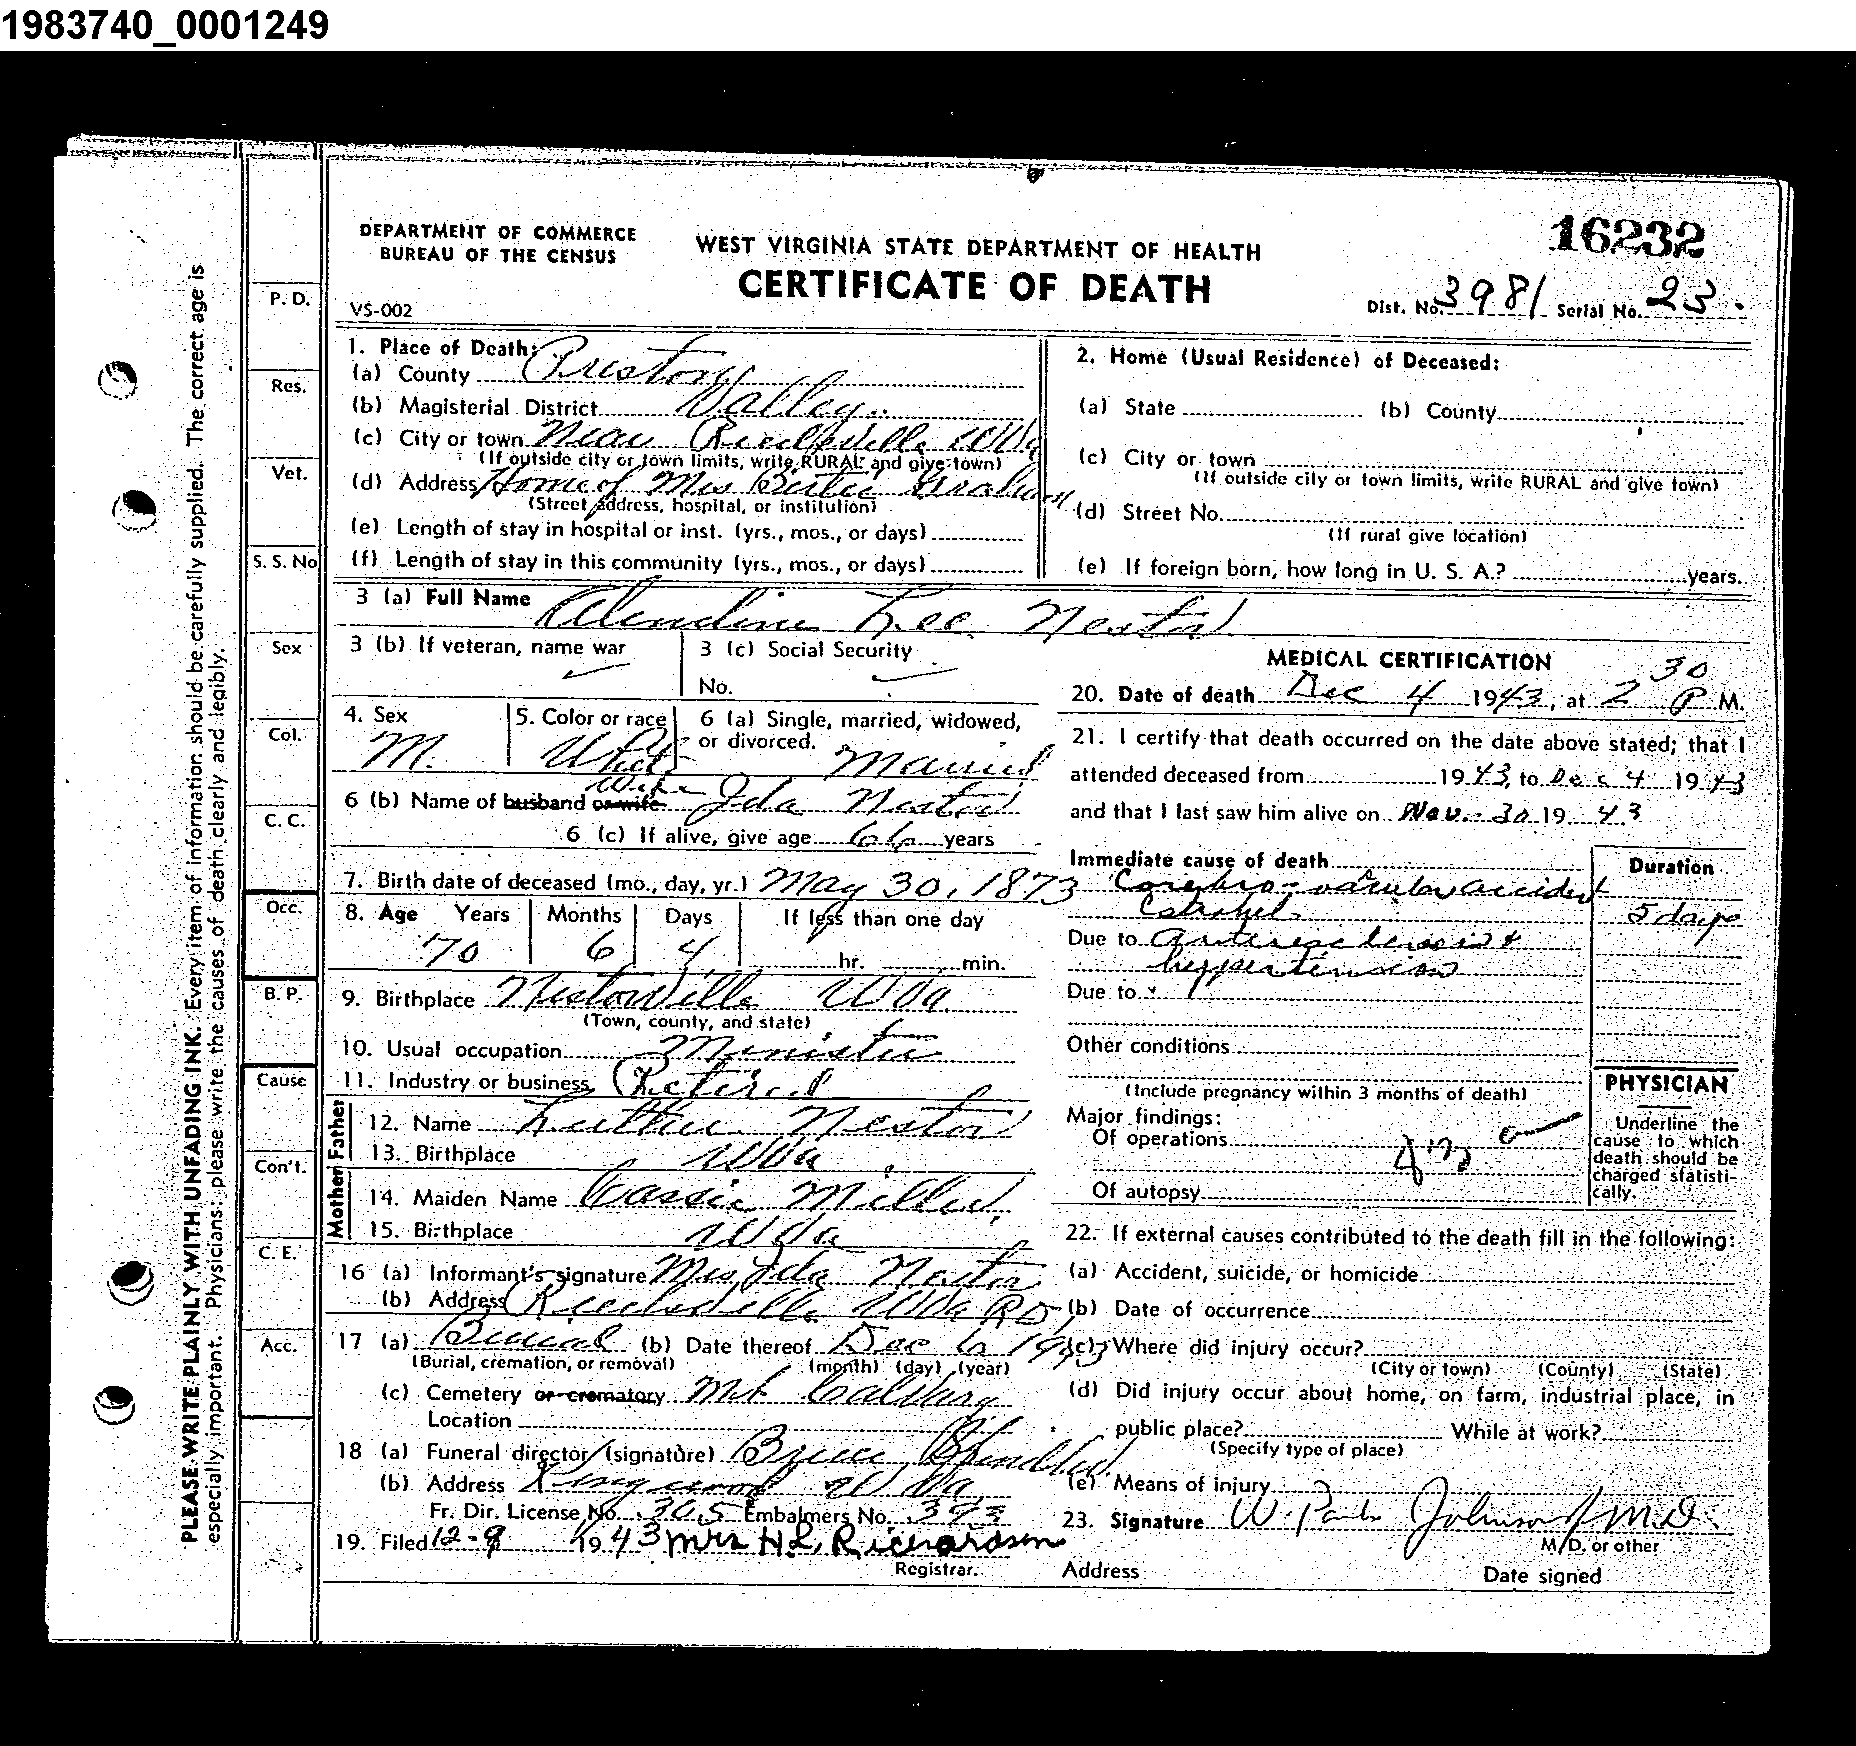 1983740_0001249
16232
DEPARTMENT OF COMMERCE
BUREAU OF THE CENSUS
WEST VIRGINIA STATE DEPARTMENT OF HEALTH
CERTIFICATE OF DEATH
VS-002
Dist. No. 3981 Serial No. 23.
PLEASE WRITE PLAINLY WITH UNFADING INK. Every item of information should be carefully supplied. The correct age is
especially important. Physicians: please write the causes of death clearly and legibly.
P. D.
Res.
Vet.
S. S. No
Sex
Col.
C. C.
Occ.
B. P.
Cause
Con't.
C. E.
Acc.
1. Place of Death:
(a) County Preston
(b) Magisterial District Valley
(c) City or town Near Reedsville WVa
(If outside city or town limits, write RURAL and give town)
(d) Address Home of Mrs Graham
(Street address, hospital, or institution)
(e) Length of stay in hospital or inst. (yrs., mos., or days)
(f) Length of stay in this community (yrs., mos., or days)
2. Home (Usual Residence) of Deceased:
(a) State (b) County
(c) City or town
(If outside city or town limits, write RURAL and give town)
(d) Street No.
(If rural give location)
(e) If foreign born, how long in U. S. A.? years.
3 (a) Full Name Lee Nestor
3 (b) If veteran, name war
3 (c) Social Security
No.
4. Sex
M.
5. Color or race
White
6 (a) Single, married, widowed,
or divorced. Married
6 (b) Name of husband or wife Wife Ida Nestor
6 (c) If alive, give age 66 years
7. Birth date of deceased (mo., day, yr.) May 30, 1873
8. Age Years Months Days If less than one day
70 6 4 hr. min.
9. Birthplace Nestorville WVa
(Town, county, and state)
10. Usual occupation Minister
11. Industry or business Retired
Father
12. Name Luther Nestor
13. Birthplace WVa
Mother
14. Maiden Name Cassie Miller
15. Birthplace WVa
16 (a) Informant's signature Mrs Ida Nestor
(b) Address Reedsville WVa RD
17 (a) Burial (b) Date thereof Dec 6 1943
(Burial, cremation, or removal) (month) (day) (year)
(c) Cemetery or crematory Mt
Location
18 (a) Funeral director (signature) Bruce
(b) Address Kingwood WVa
Fr. Dir. License No. 305 Embalmers No. 393
19. Filed 12-9 1943 Mrs H L Richardson
Registrar.
MEDICAL CERTIFICATION
20. Date of death Dec 4 1943, at 2 30 P M.
21. I certify that death occurred on the date above stated; that I
attended deceased from 1943, to Dec 4 1943
and that I last saw him alive on Nov. 30 19 43
Immediate cause of death
Duration
Cerebro-vascular accident
(stroke) 5 days
Due to Arteriosclerosis &
hypertension
Due to
Other conditions
(Include pregnancy within 3 months of death)
Major findings:
Of operations
Of autopsy
PHYSICIAN
Underline the
cause to which
death should be
charged statisti-
cally.
22. If external causes contributed to the death fill in the following:
(a) Accident, suicide, or homicide
(b) Date of occurrence
(c) Where did injury occur?
(City or town) (County) (State)
(d) Did injury occur about home, on farm, industrial place, in
public place? While at work?
(Specify type of place)
(e) Means of injury
23. Signature W. Johnson M.D.
M. D. or other
Address Date signed